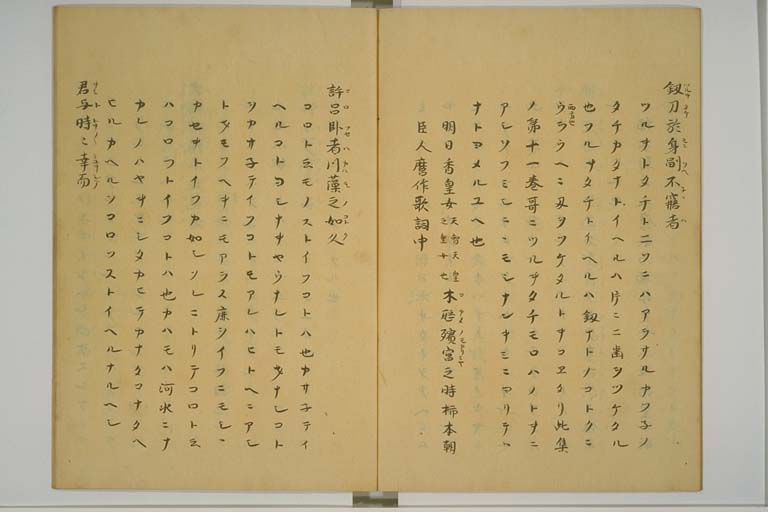 釼刀於身副不寐者
ツルキトタチト二ツニハアラサルカツネノ
タチカタナトイヘルハ片ニ二歯ヲツケタル
也ツルキタチトイヘルハ釼ナトノコトクニ
ウラウヘニ刃ヲツケタルトキコエタリ此集
ノ第十一巻哥ニツルキタチモロハノトキニ
アシフミシニニモシナンキミニヨリテハ
ナトヨメルユヘ也
明日香皇女天智天皇之皇女也木𦚰殯宮之時柿本朝
臣人麿作歌詞中
許呂臥者川藻之如久
コロト云モノストイフコトハ也カサネテイ
ヘルコトヨシナキヤウナレトモ
ツカサネテイフコトモアレハヒトヘニアシ
トオモフヘキニモアラス廉シイフニモシニ
カセキトイフカ如シソレニトリテコロト云
ハコロフトイフコトハ也カハモハ河水ニナ
カレノハヤキニシタカヒテカナタコナタヘ
ヒルカヘルヲコロフストイヘルナルヘシ
君与時々幸而